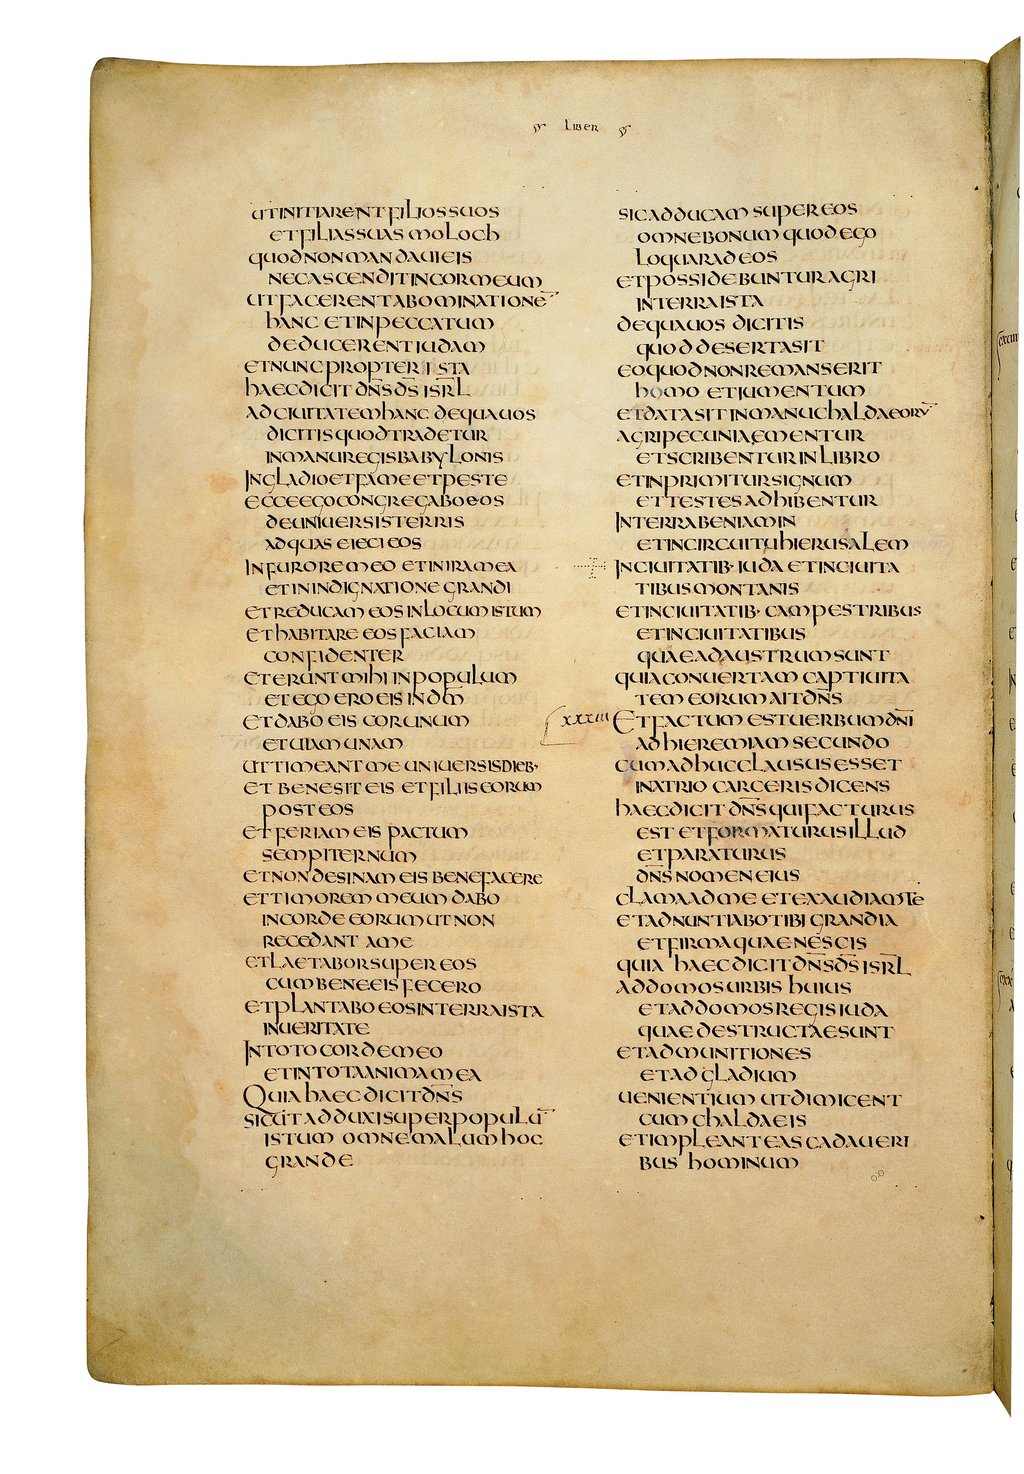 LIBER
UT INITIARENT FILIOS SUOS
ET FILIAS SUAS MOLOCH
QUOD NON MANDAUI EIS
NEC ASCENDIT IN COR MEUM
UT FACERENT ABOMINATIONE¯
HANC ET IN PECCATUM
DEDUCERENT IUDAM
ET NUNC PROPTER ISTA
HAEC DICIT DN̅S D̅S ISRL̅
AD CIUITATEM HANC DE QUA UOS
DICITIS QUOD TRADETUR
IN MANU REGIS BABYLONIS
IN GLADIO ET FAME ET PESTE
ECCE EGO CONGREGABO EOS
DE UNIUERSIS TERRIS
AD QUAS EIECI EOS
IN FURORE MEO ET IN IRA MEA
ET IN INDIGNATIONE GRANDI
ET REDUCAM EOS IN LOCUM ISTUM
ET HABITARE EOS FACIAM
CONFIDENTER
ET ERUNT MIHI IN POPULUM
ET EGO ERO EIS IN D̅M
ET DABO EIS COR UNUM
ET UIAM UNAM
UT TIMEANT ME UNIUERSIS DIEB·
ET BENE SIT EIS ET FILIIS EORUM
POST EOS
ET FERIAM EIS PACTUM
SEMPITERNUM
ET NON DESINAM EIS BENEFACERE
ET TIMOREM MEUM DABO
IN CORDE EORUM UT NON
RECEDANT A ME
ET LAETABOR SUPER EOS
CUM BENE EIS FECERO
ET PLANTABO EOS IN TERRA ISTA
IN UERITATE
IN TOTO CORDE MEO
ET IN TOTA ANIMA MEA
QUIA HAEC DICIT DN̅S
SICUT ADDUXI SUPER POPULU¯
ISTUM OMNE MALUM HOC
GRANDE
SIC ADDUCAM SUPER EOS
OMNE BONUM QUOD EGO
LOQUAR AD EOS
ET POSSIDEBUNTUR AGRI
IN TERRA ISTA
DE QUA UOS DICITIS
QUOD DESERTA SIT
EO QUOD NON REMANSERIT
HOMO ET IUMENTUM
ET DATA SIT IN MANU CHALDAEORU¯
AGRI PECUNIA EMENTUR
ET SCRIBENTUR IN LIBRO
ET INPRIMITUR SIGNUM
ET TESTES ADHIBENTUR
IN TERRA BENIAMIN
ET IN CIRCUITU HIERUSALEM
IN CIUITATIB· IUDA ET IN CIUITA
TIBUS MONTANIS
ET IN CIUITATIB· CAMPESTRIBUS
ET IN CIUITATIBUS
QUAE AD AUSTRUM SUNT
QUIA CONUERTAM CAPTIUITA
TEM EORUM AIT DN̅S
XXXIII ET FACTUM EST UERBUM DN̅I
AD HIEREMIAM SECUNDO
CUM ADHUC CLAUSUS ESSET
IN ATRIO CARCERIS DICENS
HAEC DICIT DN̅S QUI FACTURUS
EST ET FORMATURUS ILLUD
ET PARATURUS
DN̅S NOMEN EIUS
CLAMA AD ME ET EXAUDIAM TE
ET ADNUNTIABO TIBI GRANDIA
ET FIRMA QUAE NESCIS
QUIA HAEC DICIT DN̅S D̅S ISRL̅
AD DOMOS URBIS HUIUS
ET AD DOMOS REGIS IUDA
QUAE DESTRUCTAE SUNT
ET AD MUNITIONES
ET AD GLADIUM
UENIENTIUM UT DIMICENT
CUM CHALDAEIS
ET IMPLEANT EAS CADAUERI
BUS HOMINUM